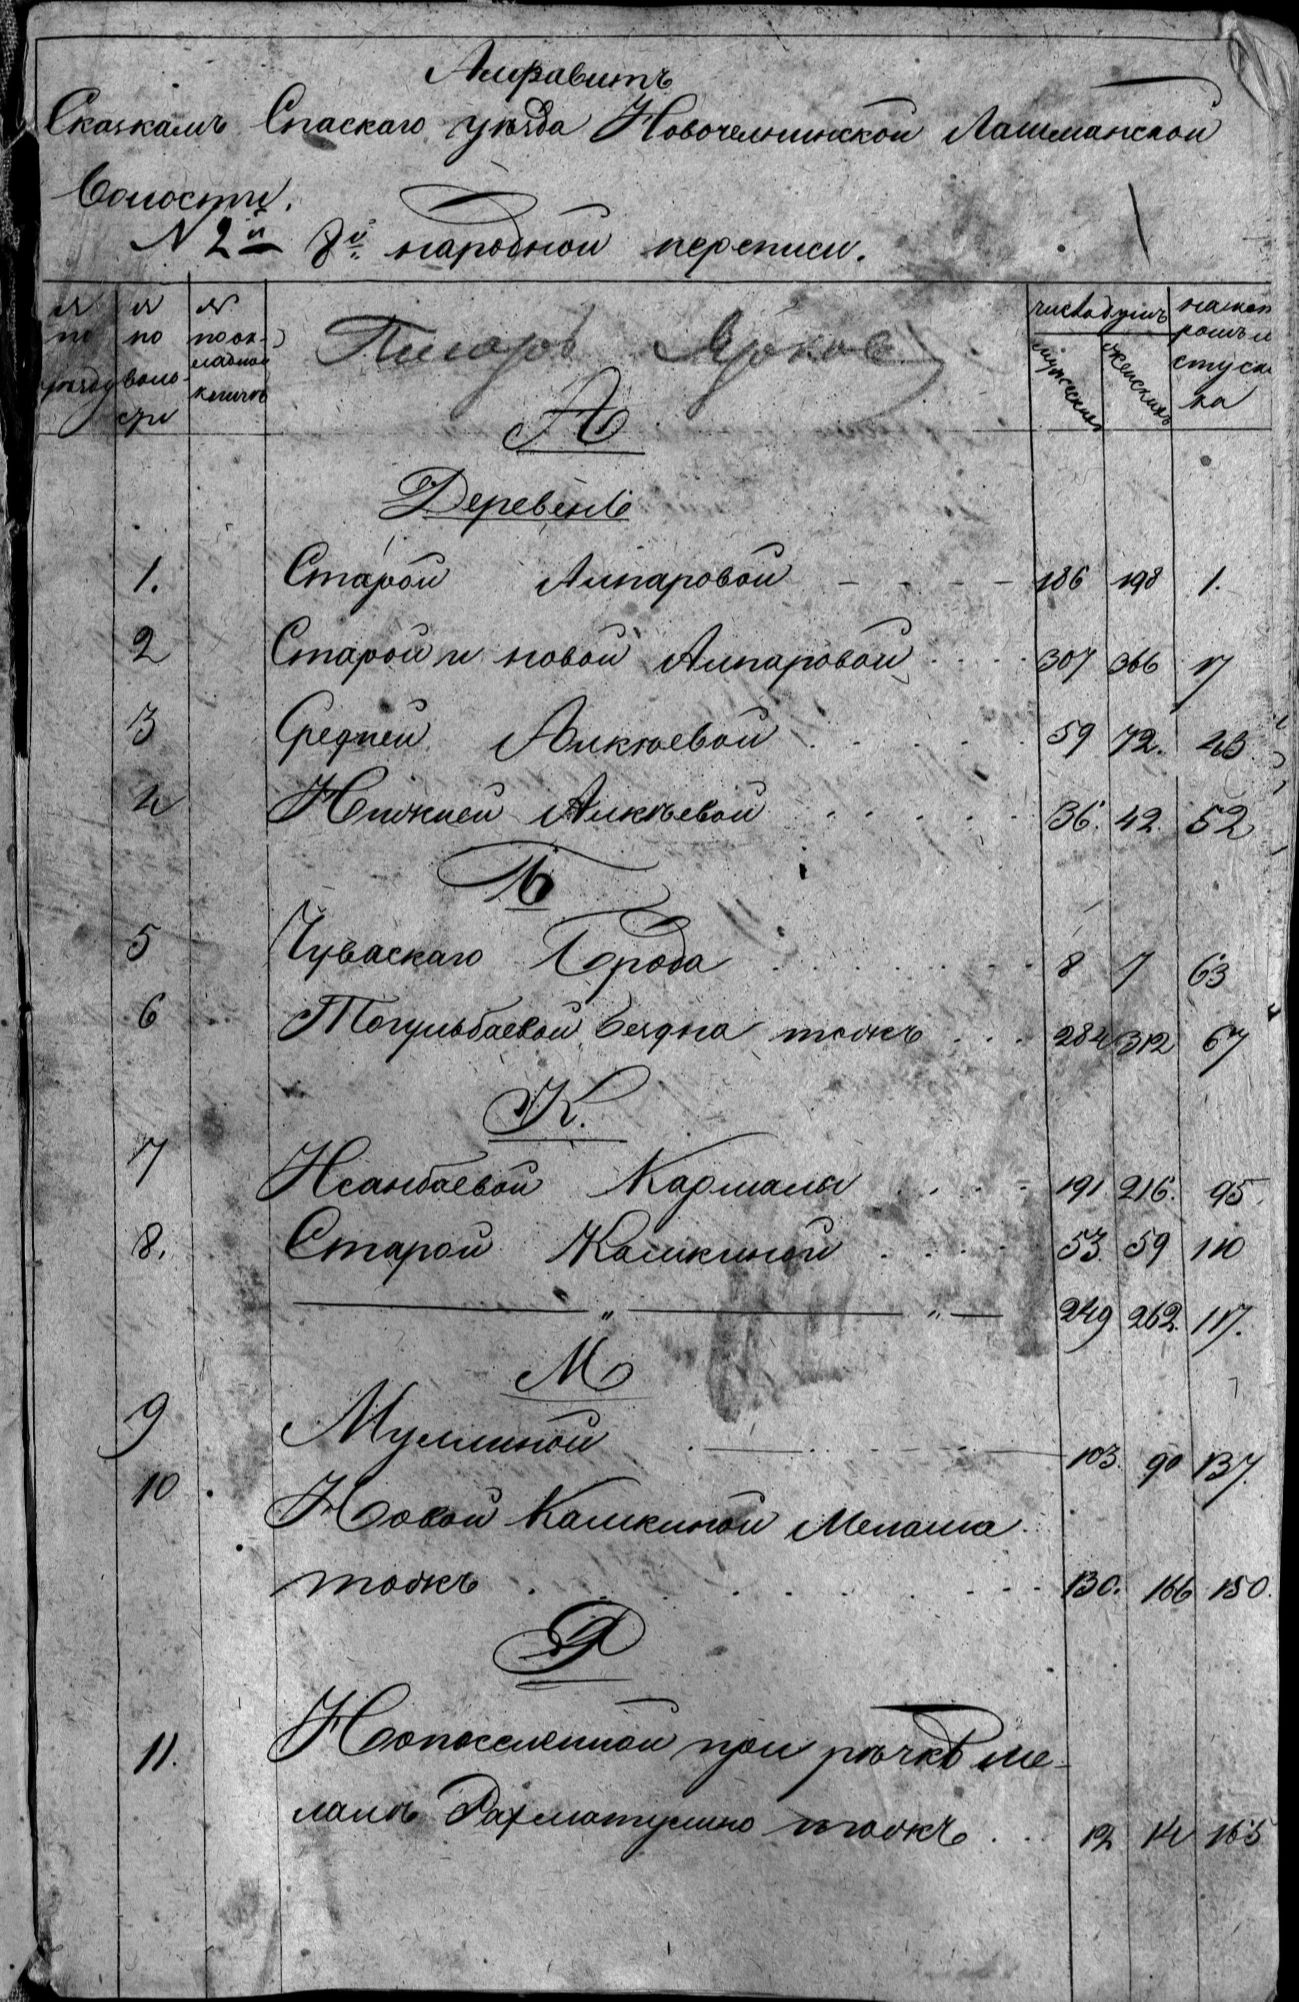 Алфавитъ
Сказкамъ Спаскаго уѣзда Новочелнинской Лашманской
Волости.
№ 2й 8й народной переписи.
№ по уѣзду № по волости № по окладной книгѣ число душъ мужскихъ женскихъ на котoромъ листу сказка
Писарь Ярков
А
Деревень
1. Старой Алпаровой 186 198 1.
2 Старой и новой Алпаровой 307 366 17
3 Средней Алкѣевой 59 72. 43
4 Нижней Алкѣевой 36. 42. 52
Б
5 Чуваскаго Брода 8 7 63
6 Тогульбаевой, бездна тожъ 284 312 67
К.
7 Исанбаевой Кармалы 191 216. 95
8. Старой Камкиной 53. 59 110
" " 249 262. 117.
М
9 Муллиной 103. 90 137.
10 Новой Камкиной Мелаша
тожъ 130. 166 150.
Р
11. Новопоселенной при рѣчкѣ Ме-
ламѣ Рахматулино тожъ 12 14 165